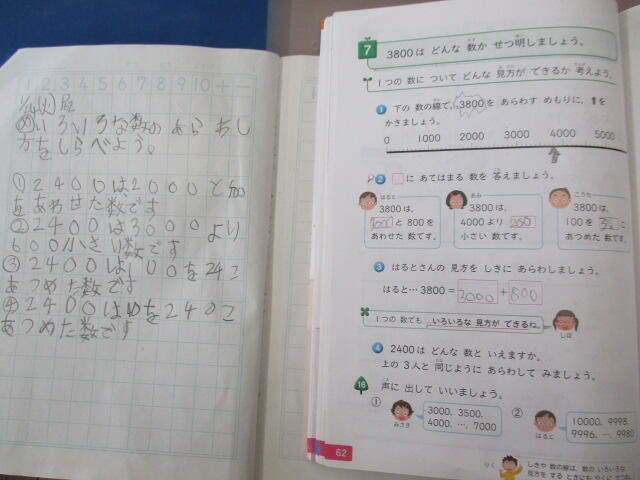 1 2 3 4 5 6 7 8 9 10 + -
いろいろな数のあらわし
方をしらべよう。
①2400は2000と400
をあわせた数です
②2400は3000より
600小さい数です
③2400は100を24こ
あつめた数です
④2400は10を240こ
あつめた数です
7
3800は どんな 数か せつ明しましょう。
1つの 数に ついて どんな 見方が できるか 考えよう。
1 下の 数の線で、3800を あらわす めもりに、↑を
かきましょう。
0 1000 2000 3000 4000 5000
2 □に あてはまる 数を 答えましょう。
はると
3800は、
と 800を
あわせた 数です。
あみ
3800は、
4000より 200
小さい 数です。
こうた
3800は、
100を こ
あつめた 数です。
3 はるとさんの 見方を しきに あらわしましょう。
はると…3800=3000+800
1つの 数でも、いろいろな 見方が できるね。
しほ
4 2400は どんな 数と いえますか。
上の 3人と 同じように あらわして みましょう。
16 声に 出して いいましょう。
①
みさき
3000、3500、
4000、…、7000
②
はると
10000、9998、
9996、…、9980
62
りく
しきや 数の線は、数の いろいろな
見方を する ときにも やくに